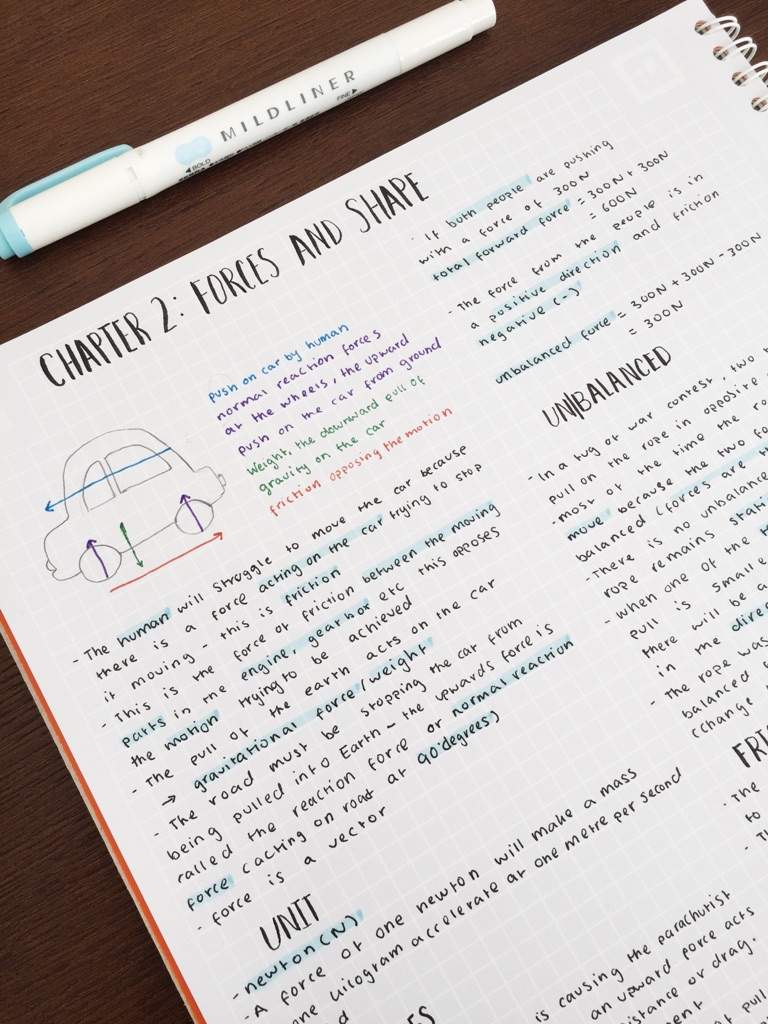 MILDLINER
◄BOLD
FINE►
CHAPTER 2: FORCES AND SHAPE
push on car by human
normal reaction forces
at the wheels, the upward
push on the car from ground
Weight, the downward pull of
gravity on the car
friction opposing the motion
- The human will struggle to move the car because
there is a force acting on the car trying to stop
it moving - this is friction
- This is the force of friction between the moving
parts in the engine, gear box etc this opposes
the motion trying to be achieved
- The pull of the earth acts on the car
→ gravitational force/weight
- The road must be stopping the car from
being pulled into Earth - the upwards force is
called the reaction force or normal reaction
force (acting on road at 90°degrees)
- force is a vector
UNIT
- newton (N)
- A force of one newton will make a mass
one kilogram accelerate at one metre per second
- If both people are pushing
with a force of 300N
total forward force = 300N + 300N
= 600N
- The force from the people is in
a positive direction and friction
negative (-)
unbalanced force = 300N + 300N - 300N
= 300N
UN/BALANCED
- In a tug of war contest, two
pull on the rope in opposite
- most of the time the
move, because the two
balanced (forces are
- There is no unbalanced
rope remains
- When one of the
pull is smaller
there will be a
in the
- The rope was
balanced
(change
- The
to
is causing the parachutist
an upward force acts
or drag.